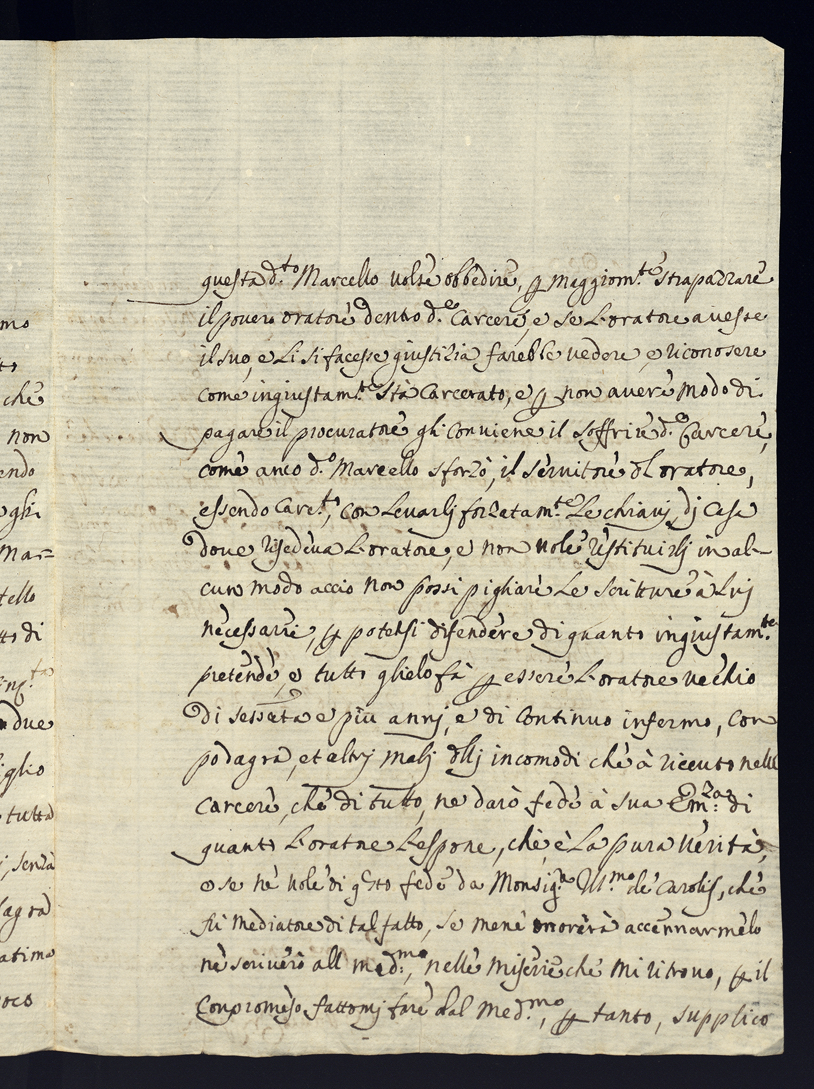 questa d.to Marcello volse obbedire, ꝑ maggiorm.te strapazzare
il povero oratore dentro d.e Carcere, e se L'oratore avesse
il suo, e Li si facesse giustizia farebbe vedere, e riconosere
come ingiustam.te stà Carcerato, e ꝑ non avere modo di
pagare il procuratore gli Conviene il soffrire d.e Carcere,
come anco d.o Marcello sforzò, il servitore dl oratore,
essendo Carc.to, Con Levarlj forzatam.te Le chiavj dj Casa
dove risedeva L'oratore, e non vole restituirlj in al-
cun modo accio non possi pigliare Le scritture à Luj
necessarie, ꝑ potersi difendere di quanto ingiustam.te
pretende, e tutto glielo fà ꝑ essere L'oratore vechio
di sessata e più annj, e di Continuo infermo, Con
podagra, et altrj malj dllj incomodi che à riceuto nelle
Carcere, che di tutto, ne darò fede à sua Em.za di
quanto L'oratne Lespone, che è La pura verità,
e se ne vole di q.sto fede da Monsig.re Ill.mo de Carolis, che
fù Mediatore di tal fatto, se mene onorerà accennarmelo
ne scriverò all med.mo, nelle Miserie che mi ritrovo, ꝑ il
Conpromeso fattomj fare dal Med.mo, ꝑ tanto, supplico
mo
che
non
endo
Mar=
tello
tto di
due
iglio
tutta
senza
atimo
oco